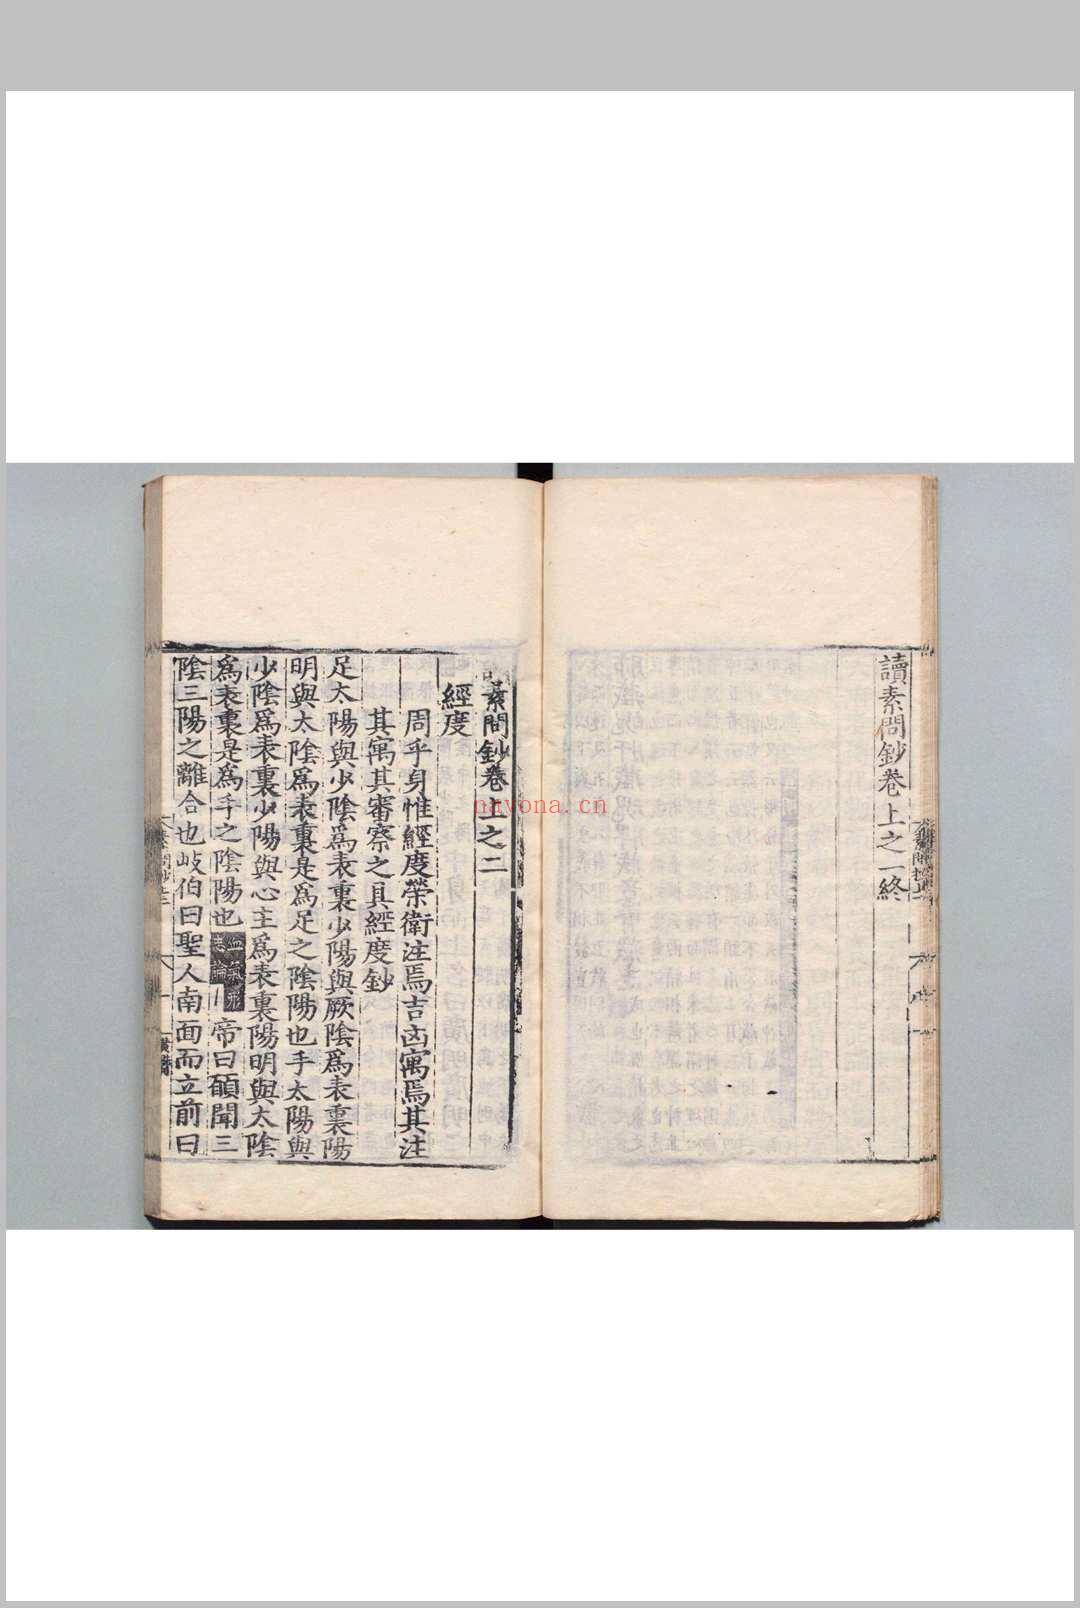 讀素問鈔卷上之一終
素問鈔卷上之二
經度
周乎身惟經度榮衛注焉吉凶寓焉其注
其寓其審察之具經度鈔
足太陽與少陰爲表裏少陽與厥陰爲表裏陽
明與太陰爲表裏是爲足之陰陽也手太陽與
少陰爲表裏少陽與心主爲表裏陽明與太陰
爲表裏是爲手之陰陽也 帝曰願聞三
陰三陽之離合也岐伯曰聖人南面而立前曰
nayona.cn